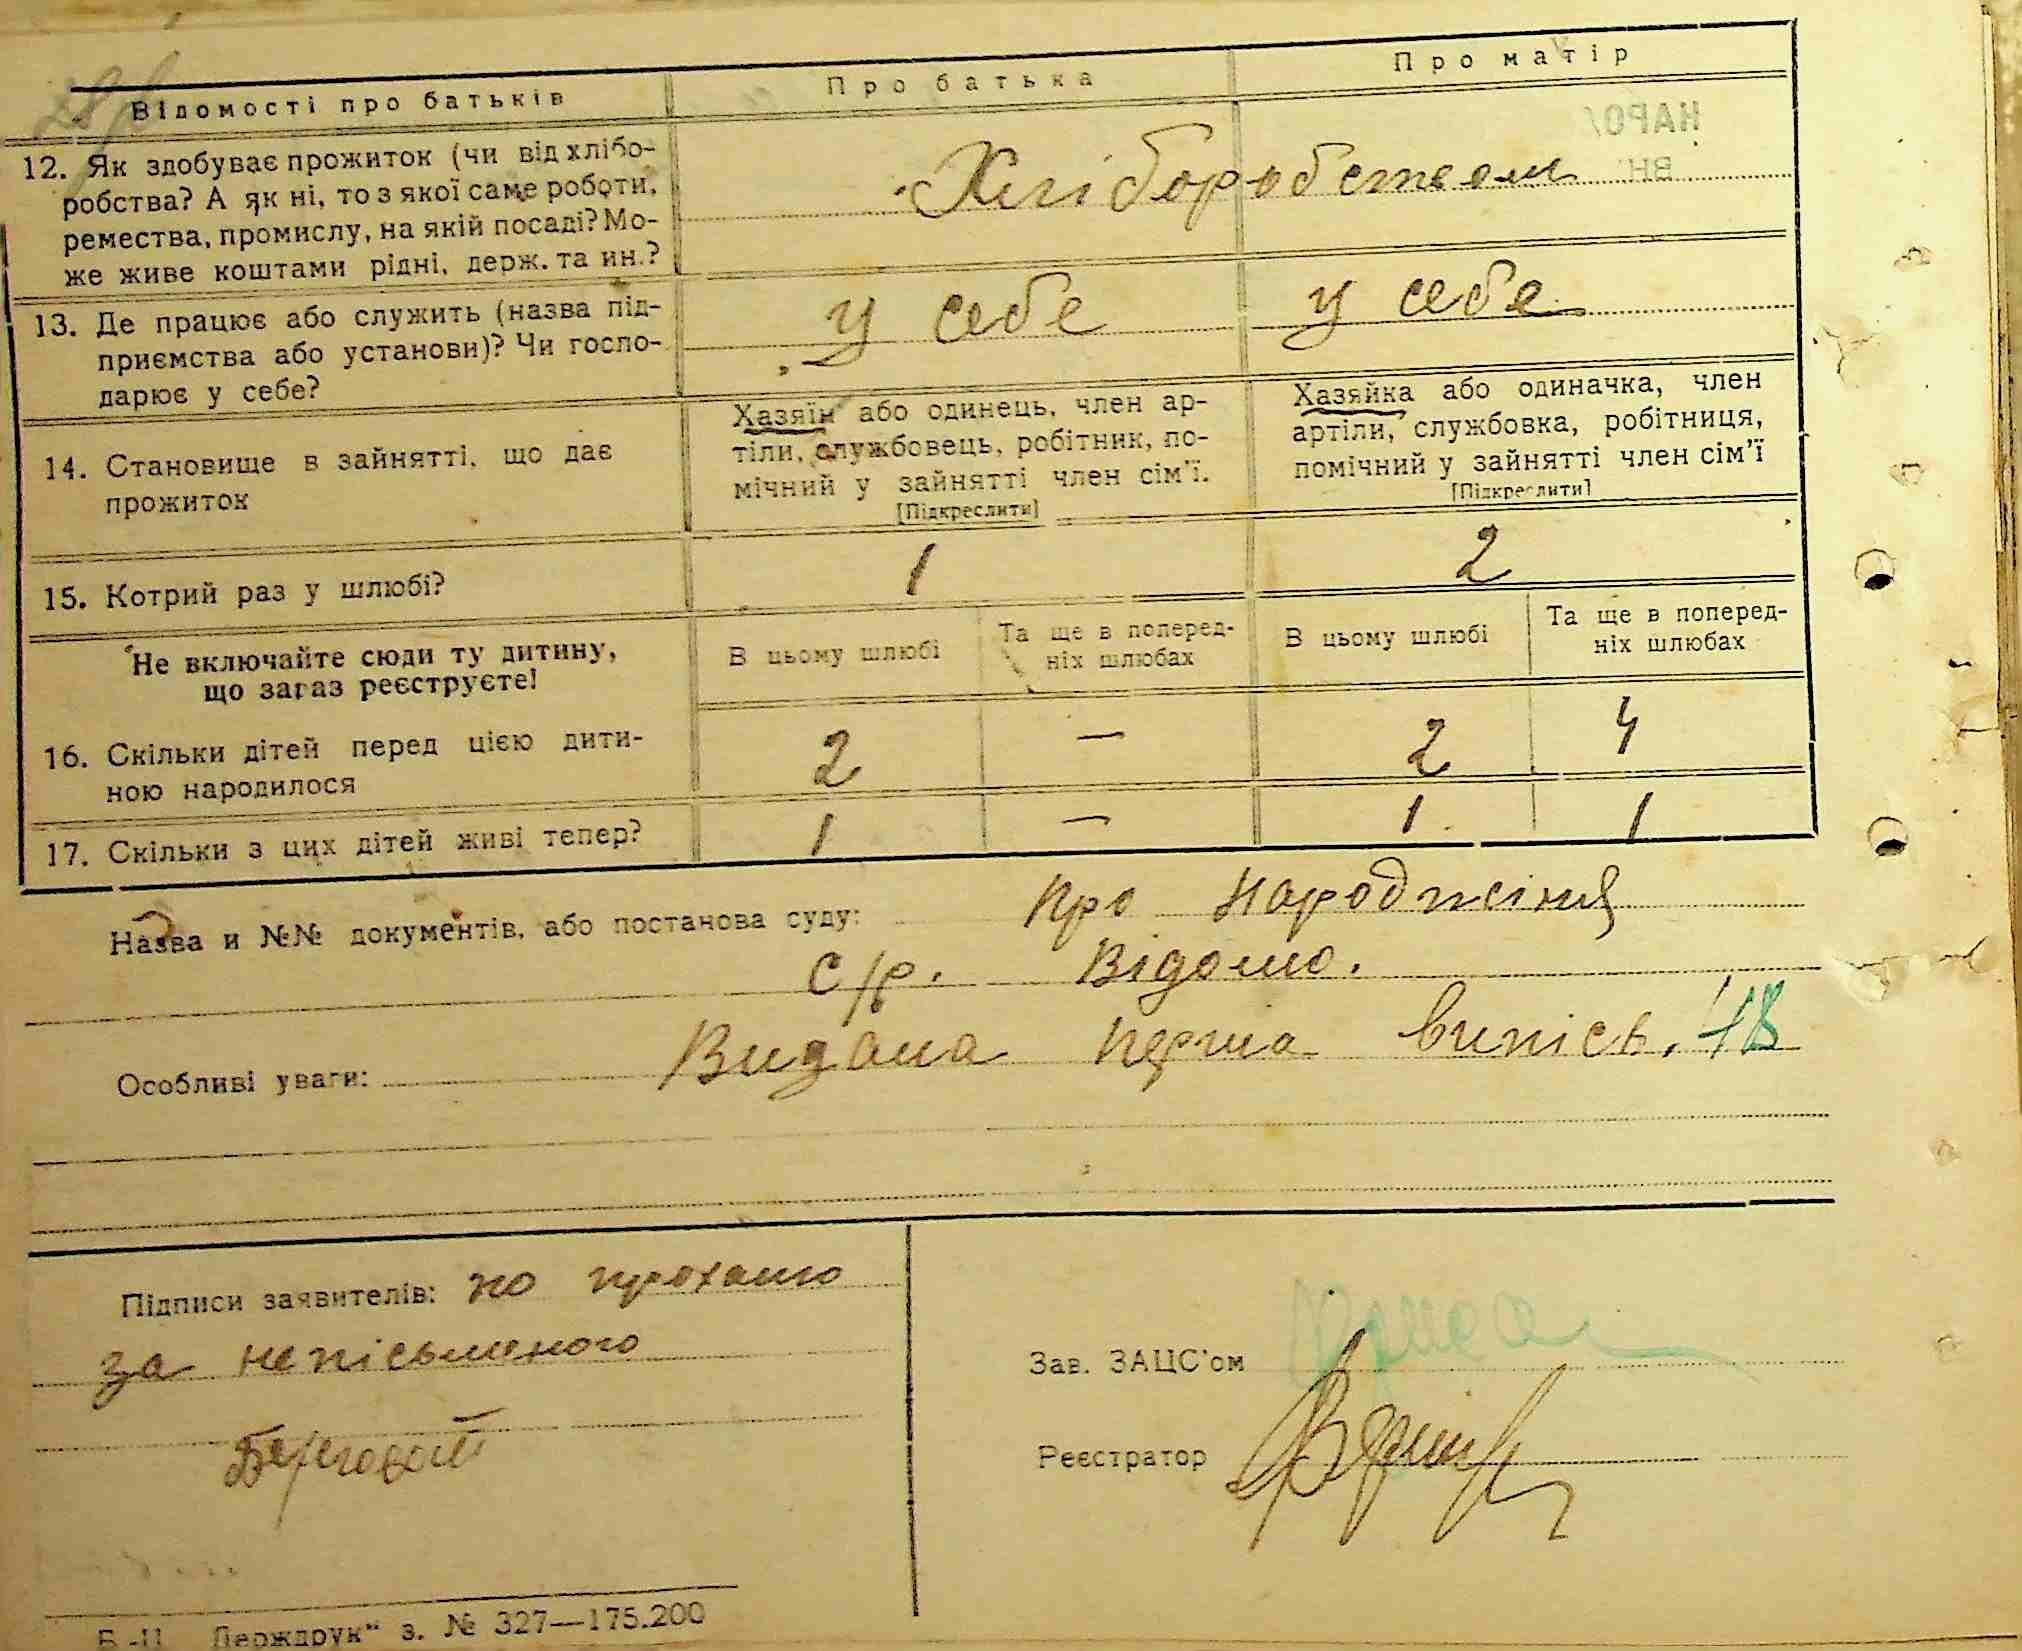 Відомості про батьків
Про батька
Про матір
12. Як здобуває прожиток (чи від хлібо-
робства? А як ні, то з якої саме роботи,
ремества, промислу, на якій посаді? Мо-
же живе коштами рідні, держ. та ин.?
Хліборобством
13. Де працює або служить (назва під-
приємства або установи)? Чи госпо-
дарює у себе?
у себе
у себе
14. Становище в зайнятті, що дає
прожиток
Хазяїн або одинець, член ар-
тіли, службовець, робітник, по-
мічний у зайнятті член сім'ї.
[Підкреслити]
Хазяйка або одиначка, член
артіли, службовка, робітниця,
помічний у зайнятті член сім'ї
[Підкреслити]
15. Котрий раз у шлюбі?
1
2
Не включайте сюди ту дитину,
що зараз реєструєте!
В цьому шлюбі
Та ще в поперед-
ніх шлюбах
В цьому шлюбі
Та ще в поперед-
ніх шлюбах
16. Скільки дітей перед цією дити-
ною народилося
2 — 2 4
17. Скільки з цих дітей живі тепер?
1 — 1 1
Назва и №№ документів, або постанова суду: Про народжіння
с/р. Відомо.
Особливі уваги: Видана перша випісь.
Підписи заявителів: по проханю
за непісьменого
Береговой
Зав. ЗАЦС'ом
Реєстратор
Держдрук" з. № 327—175.200
НАРО
ВН